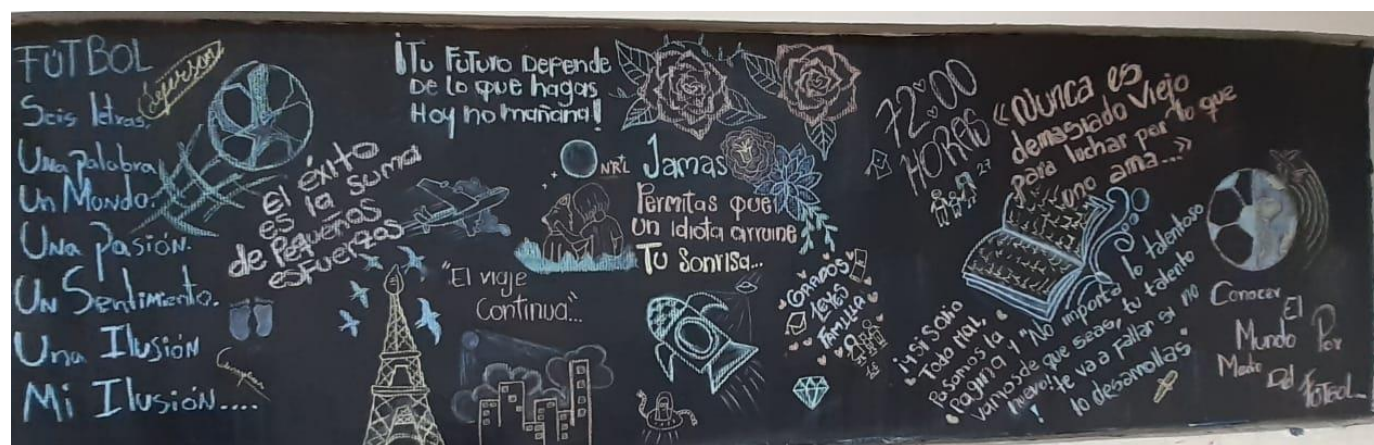 FÚTBOL
Seis letras,
Una Palabra
Un Mundo.
Una Pasión.
Un Sentimiento.
Una Ilusión
Mi Ilusión....
Jeferson
El éxito
es la suma
de Pequeños
esfuerzos
¡Tu Futuro Depende
De lo que hagas
Hoy no mañana!
"El viaje
Continua"...
NRL
Jamas
Permitas que
Un Idiota arruine
Tu Sonrisa...
GRADOS
FAMILIA
72:00
HORAS
27
«Nunca es
demasiado Viejo
para luchar por lo que
uno ama...»
Todo Mal,
Pasamos la
Pagina y
vamos de
nuevo!
"No importa lo talentoso
que seas, tu talento
te va a Fallar si no
lo desarrollas"
Conocer
El
Mundo Por
Medio Del Fútbol...